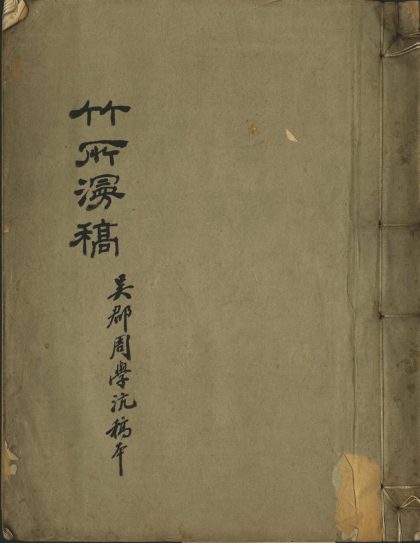 竹所漫稿
吴郡周學沆稿本